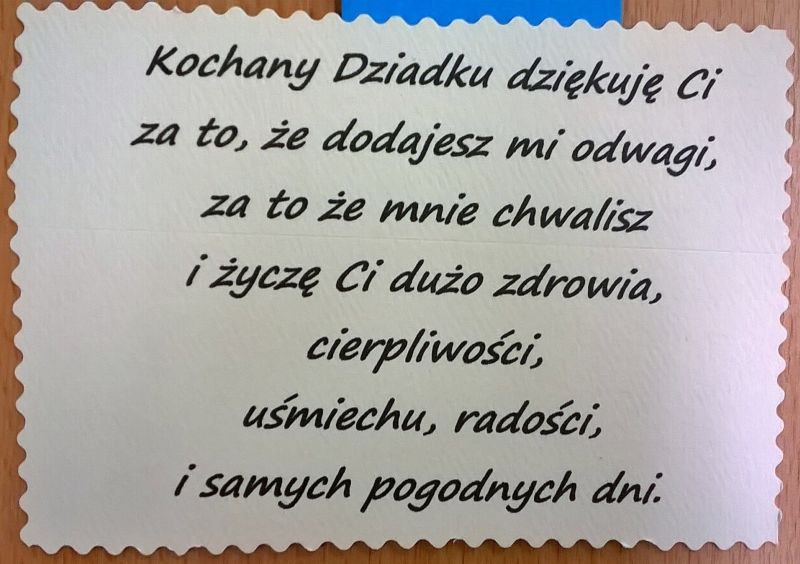 Kochany Dziadku dziękuję Ci
za to, że dodajesz mi odwagi,
za to że mnie chwalisz
i życzę Ci dużo zdrowia,
cierpliwości,
uśmiechu, radości,
i samych pogodnych dni.